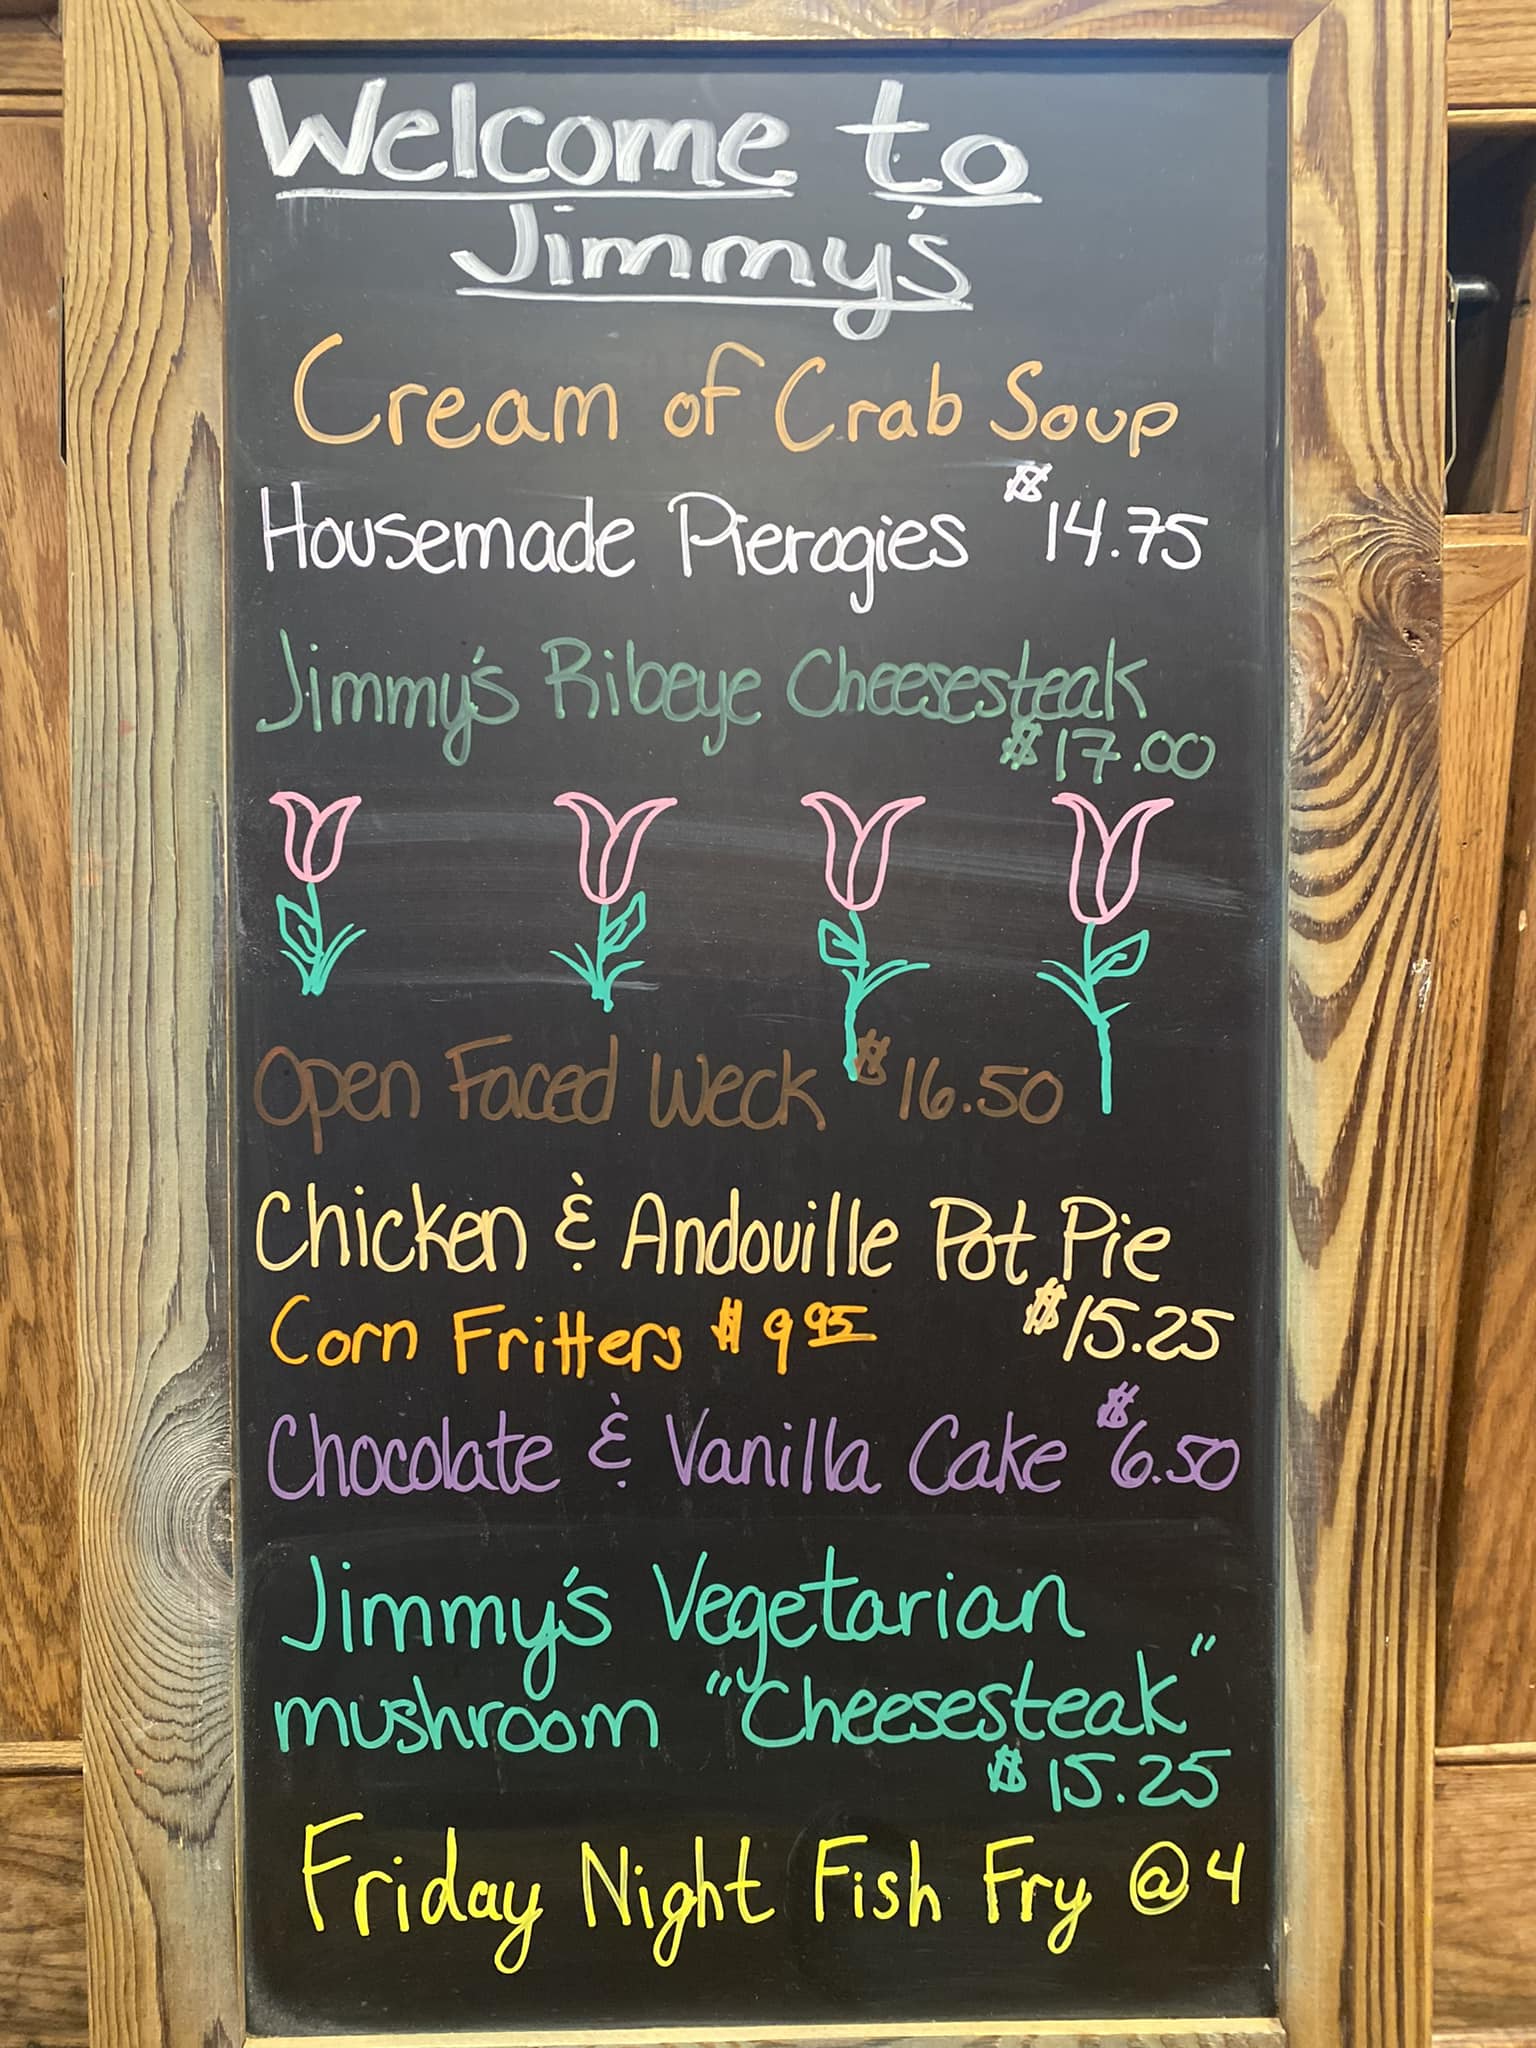 Welcome to
Jimmy's
Cream of Crab Soup
Housemade Pierogies $14.75
Jimmy's Ribeye Cheesesteak
$17.00
Open Faced Weck $16.50
Chicken & Andouille Pot Pie
$15.25
Corn Fritters $9.95
Chocolate & Vanilla Cake $6.50
Jimmy's Vegetarian
mushroom "Cheesesteak"
$15.25
Friday Night Fish Fry @4